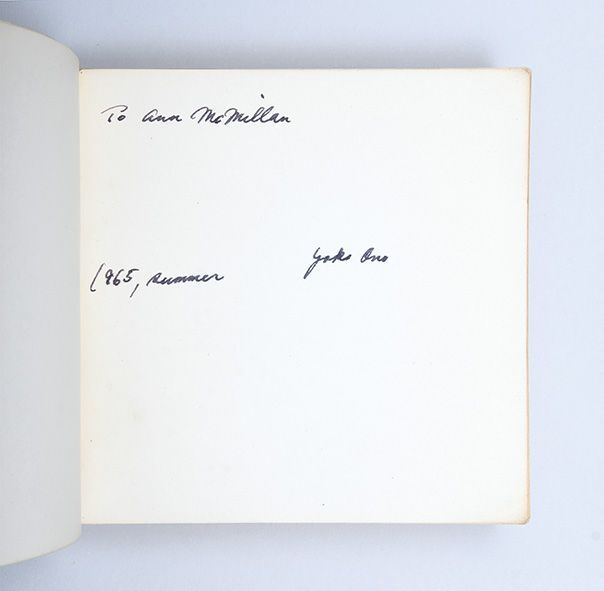 To Ann McMillan
Yoko Ono
1965, summer